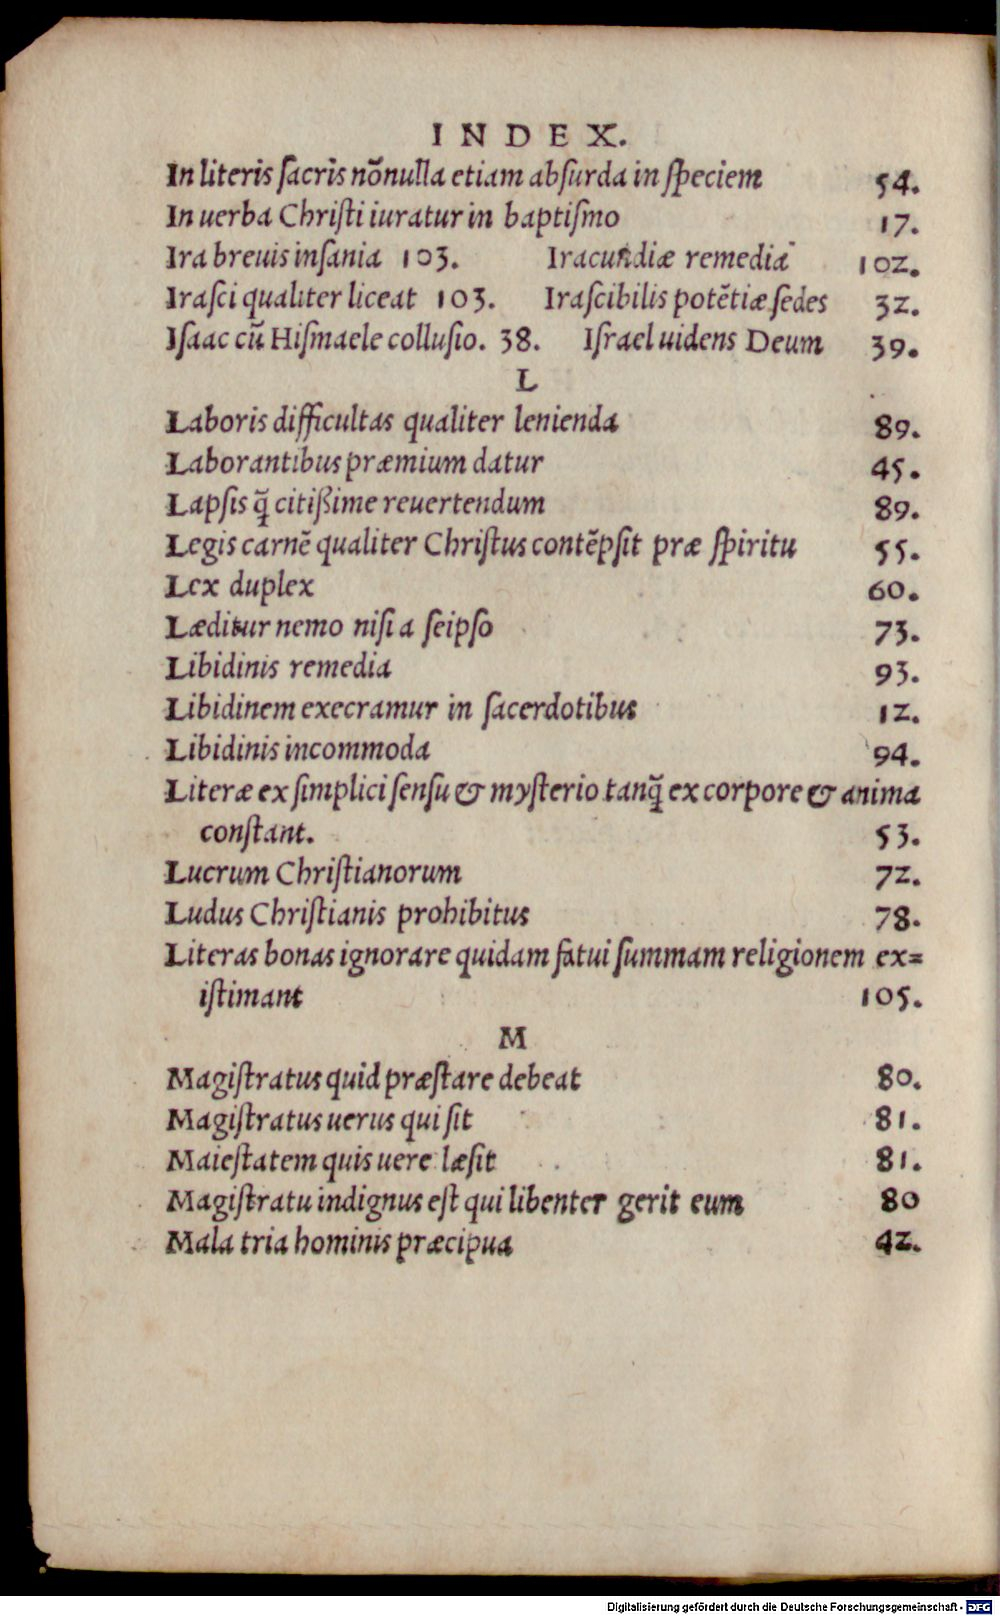 INDEX.
In literis ſacris nõnulla etiam abſurda in ſpeciem 54.
In uerba Chriſti iuratur in baptiſmo 17.
Ira breuis inſania 103. Iracundiæ remedia 102.
Iraſci qualiter liceat 103. Iraſcibilis potẽtiæ ſedes 32.
Iſaac cũ Hiſmaele colluſio. 38. Iſrael uidens Deum 39.
L
Laboris difficultas qualiter lenienda 89.
Laborantibus præmium datur 45.
Lapſis q̃ citißime reuertendum 89.
Legis carnẽ qualiter Chriſtus contẽpſit præ ſpiritu 55.
Lex duplex 60.
Læditur nemo niſi a ſeipſo 73.
Libidinis remedia 93.
Libidinem execramur in ſacerdotibus 12.
Libidinis incommoda 94.
Literæ ex ſimplici ſenſu & myſterio tanq̃ ex corpore & anima
conſtant. 53.
Lucrum Chriſtianorum 72.
Ludus Chriſtianis prohibitus 78.
Literas bonas ignorare quidam fatui ſummam religionem ex=
iſtimant 105.
M
Magiſtratus quid præſtare debeat 80.
Magiſtratus uerus qui ſit 81.
Maieſtatem quis uere læſit 81.
Magiſtratu indignus eſt qui libenter gerit eum 80
Mala tria hominis præcipua 42.
Digitalisierung gefördert durch die Deutsche Forschungsgemeinschaft - DFG